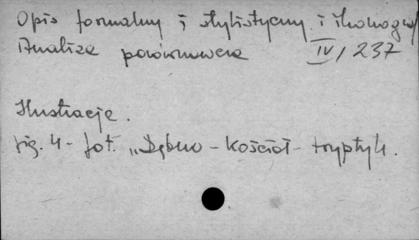 Opis formalny i stylistyczny i ikonograf
Analiza porównawcza IV/237
Ilustracje.
fig. 4 - fot. „Dębno - Kościół - tryptyk.